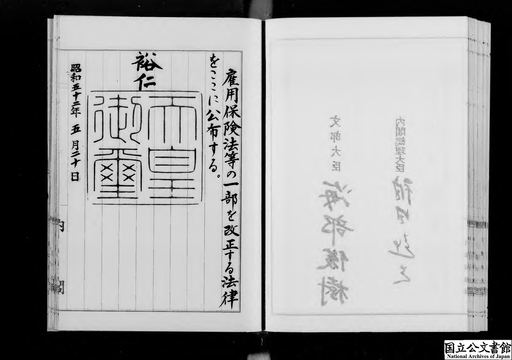 内閣総理大臣 福田赳夫
文部大臣 海部俊樹
雇用保険法等の一部を改正する法律
をここに公布する。
裕仁
天皇
御璽
昭和五十二年五月二十日
内閣
国立公文書館
National Archives of Japan